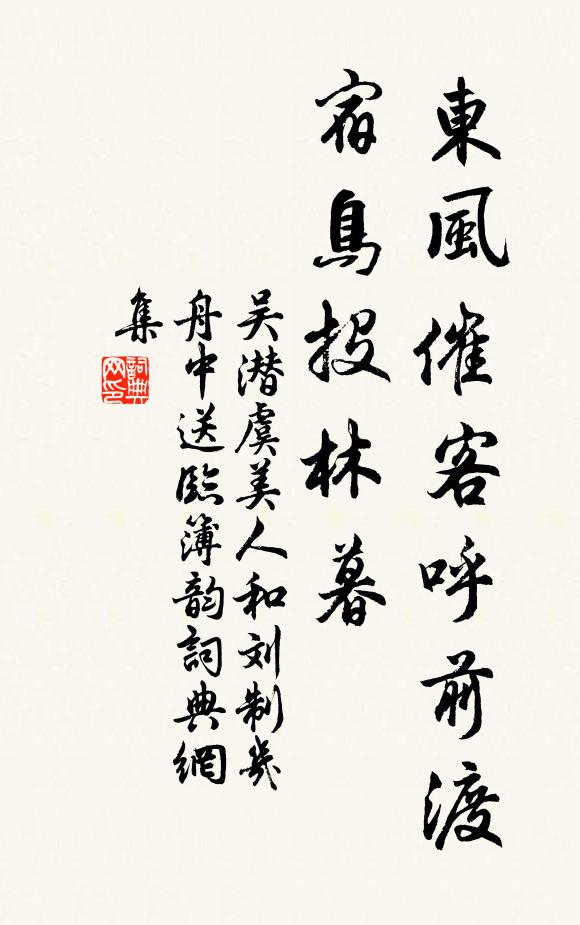 東風催客呼前渡
宿鳥投林暮
吴潜虞美人和刘制幾
舟中送監簿韵詞典網
集
詞典网印